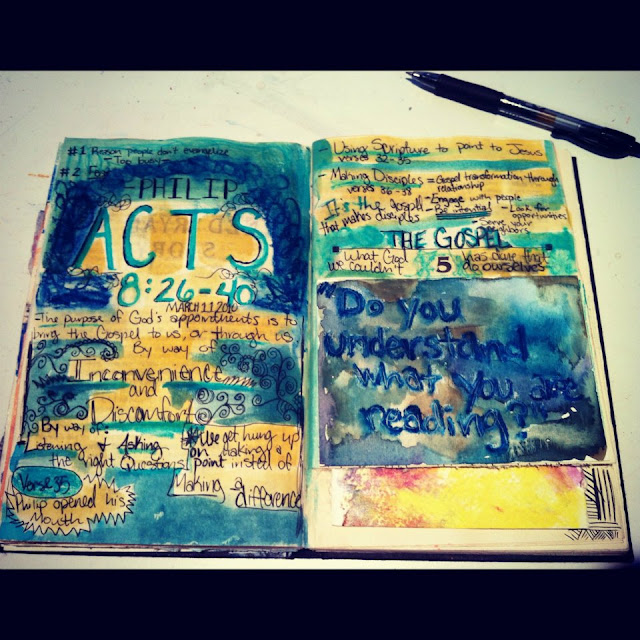 #1 Reason people don't evangelize
- Too busy
#2 Fear
- PHILIP
ACTS
8:26-40
MARCH 11 2016
- The purpose of God's appointments is to
bring the Gospel to us, or through us
By way of
Inconvenience
and
Discomfort
- By way of
- Listening & Asking
the Right Questions
#We get hung up
on making a
point instead of
Making a
difference
Verse 35
Philip opened his
Mouth
- Using Scripture to point to Jesus
verses 32-35
- Making Disciples = Gospel transformation through
verses 36-38 relationship
It's the Gospel
that makes disciples
- Engage with people
- Be
- Look for
opportunities
- Serve your
neighbors
THE GOSPEL
what God has done that
we couldn't do ourselves
5
"Do you
understand
what you are
reading?"